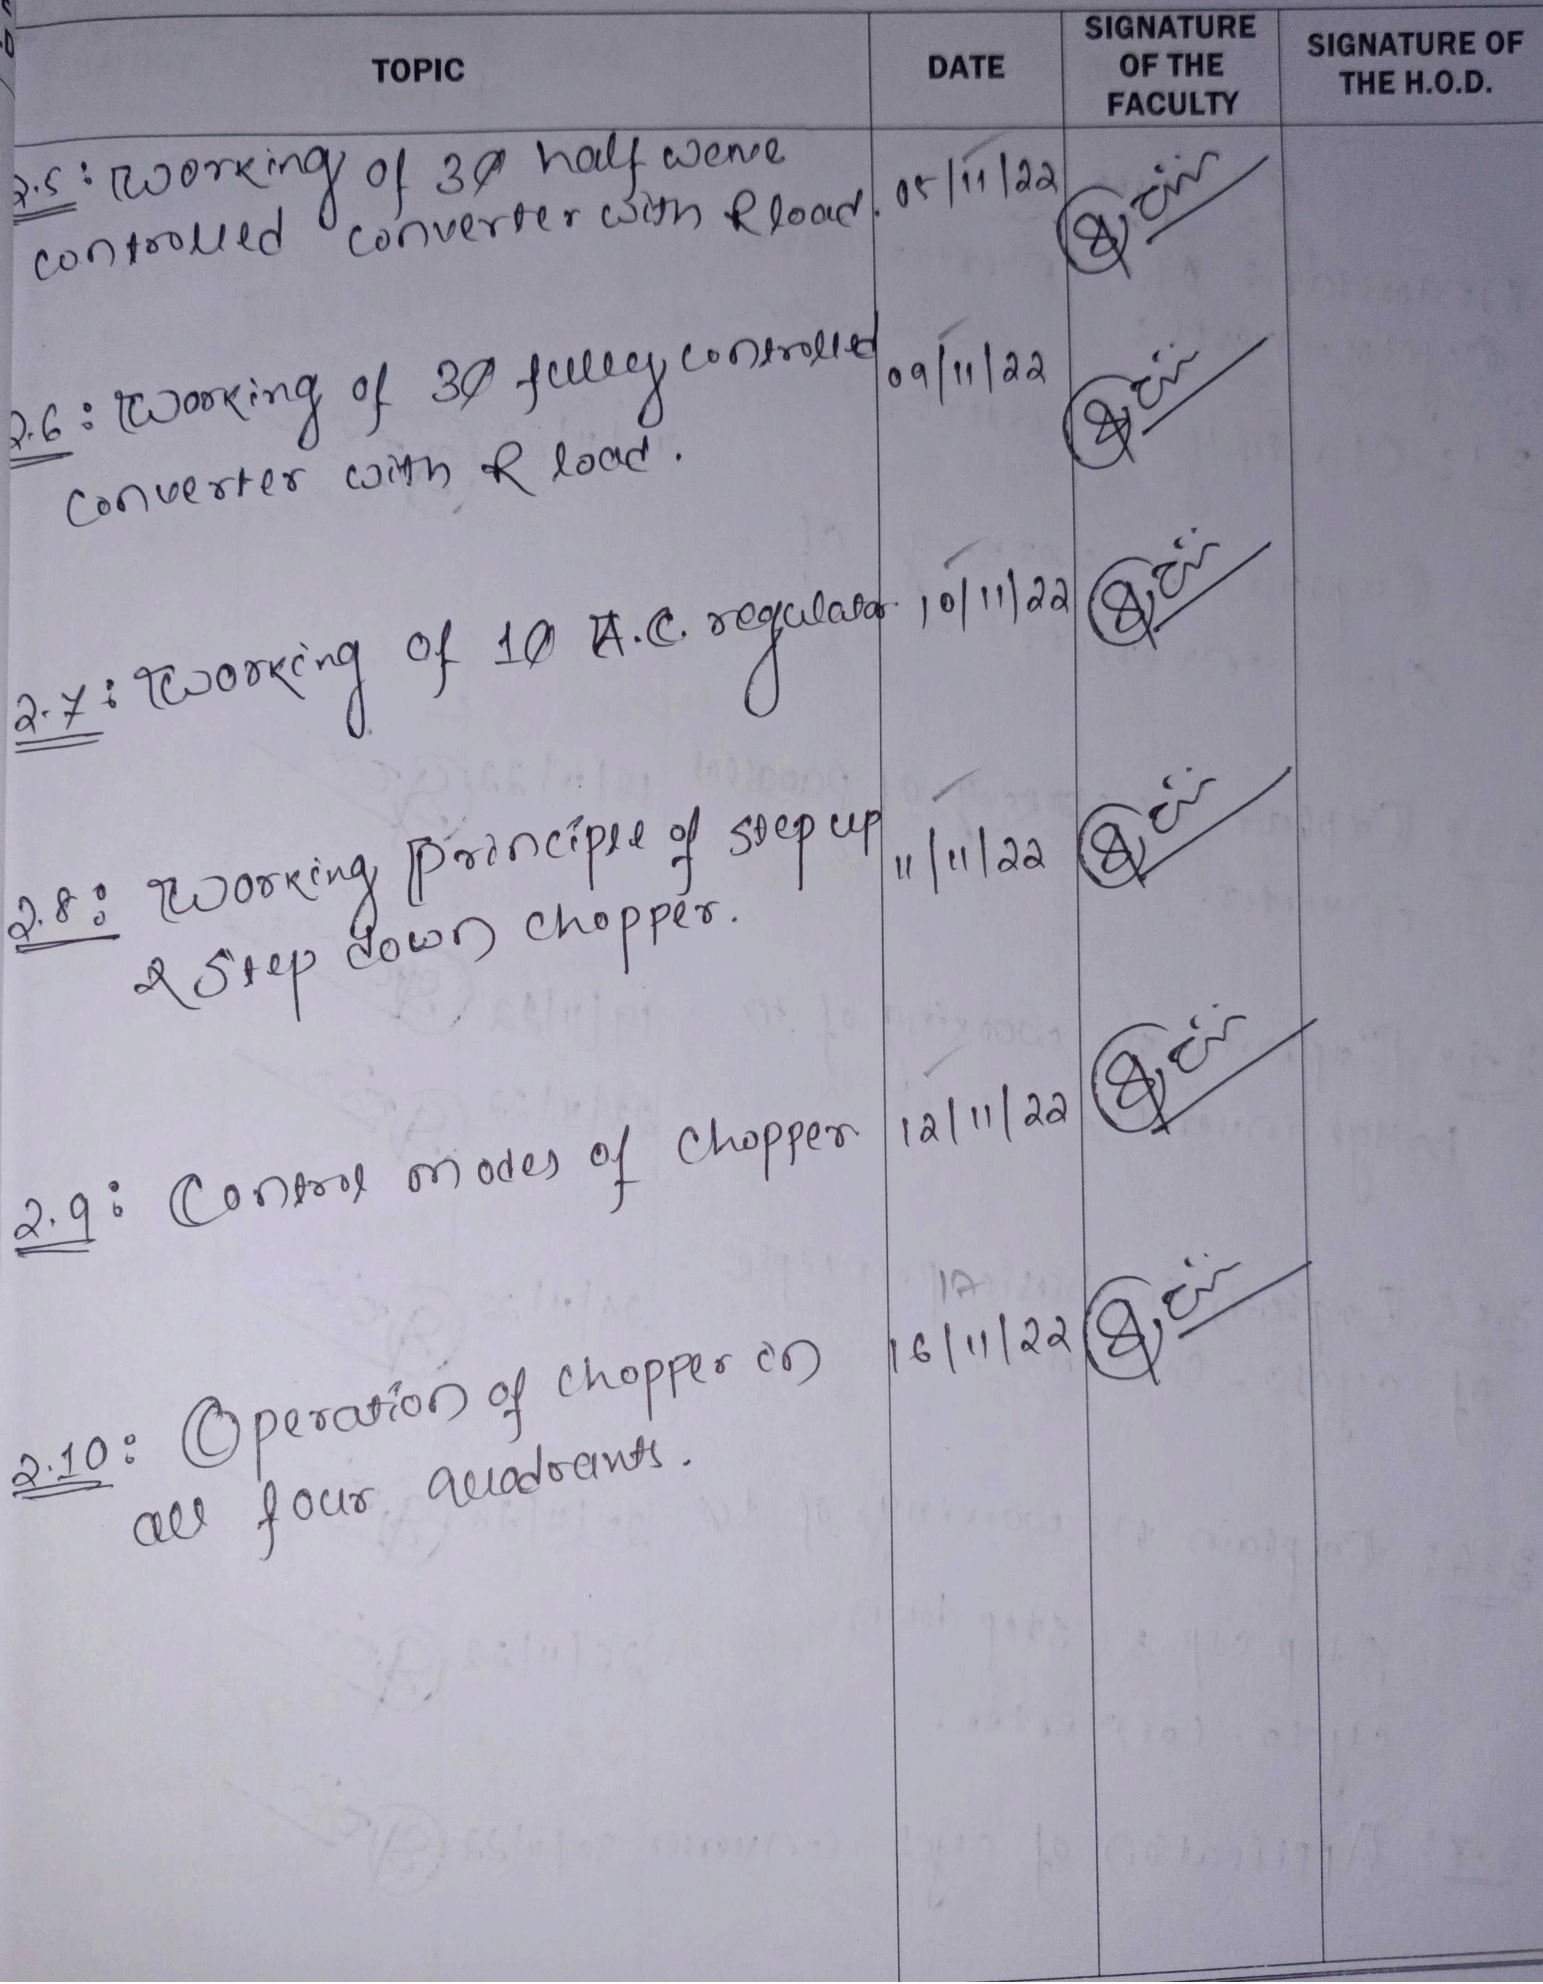 TOPIC DATE SIGNATURE OF THE FACULTY SIGNATURE OF THE H.O.D.
2.5: Working of 3Ø half wave 05/11/22
controlled converter with R load.
2.6: Working of 3Ø fully controlled 09/11/22
converter with R load.
2.7: Working of 1Ø A.C. regulator 10/11/22
2.8: Working principle of step up 11/11/22
& Step down chopper.
2.9: Control modes of chopper 12/11/22
17
2.10: Operation of chopper in 16/11/22
all four quadrants.